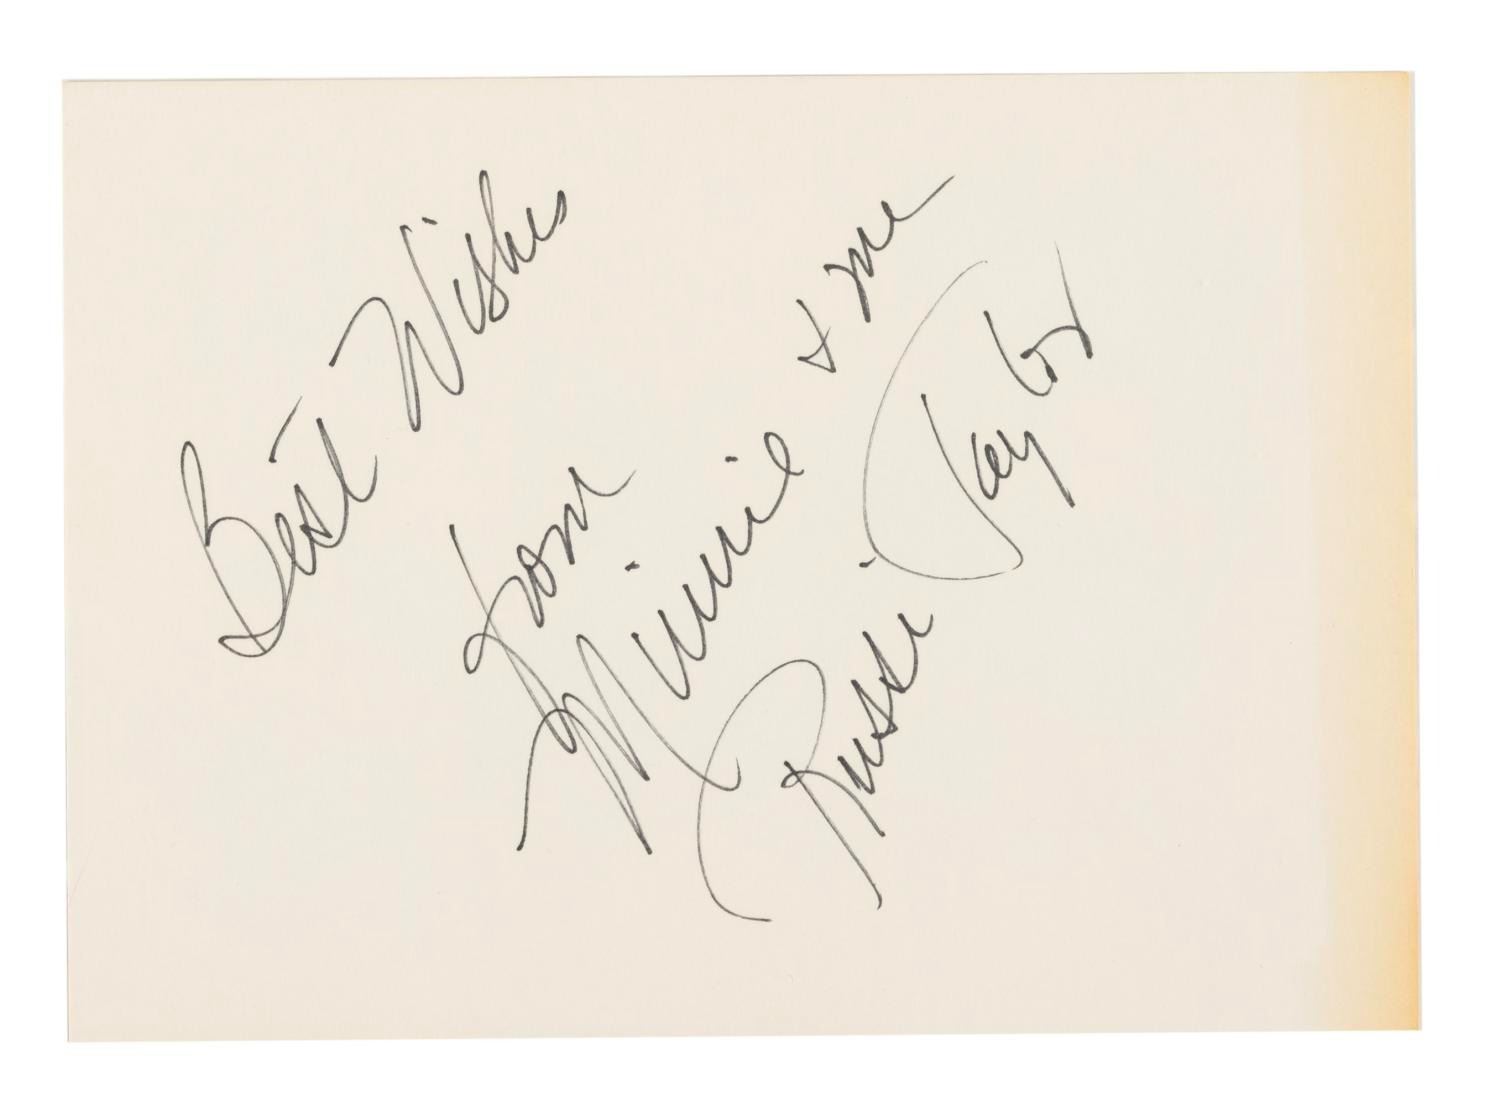 Best Wishes
from
Minnie & me
Russi Taylor